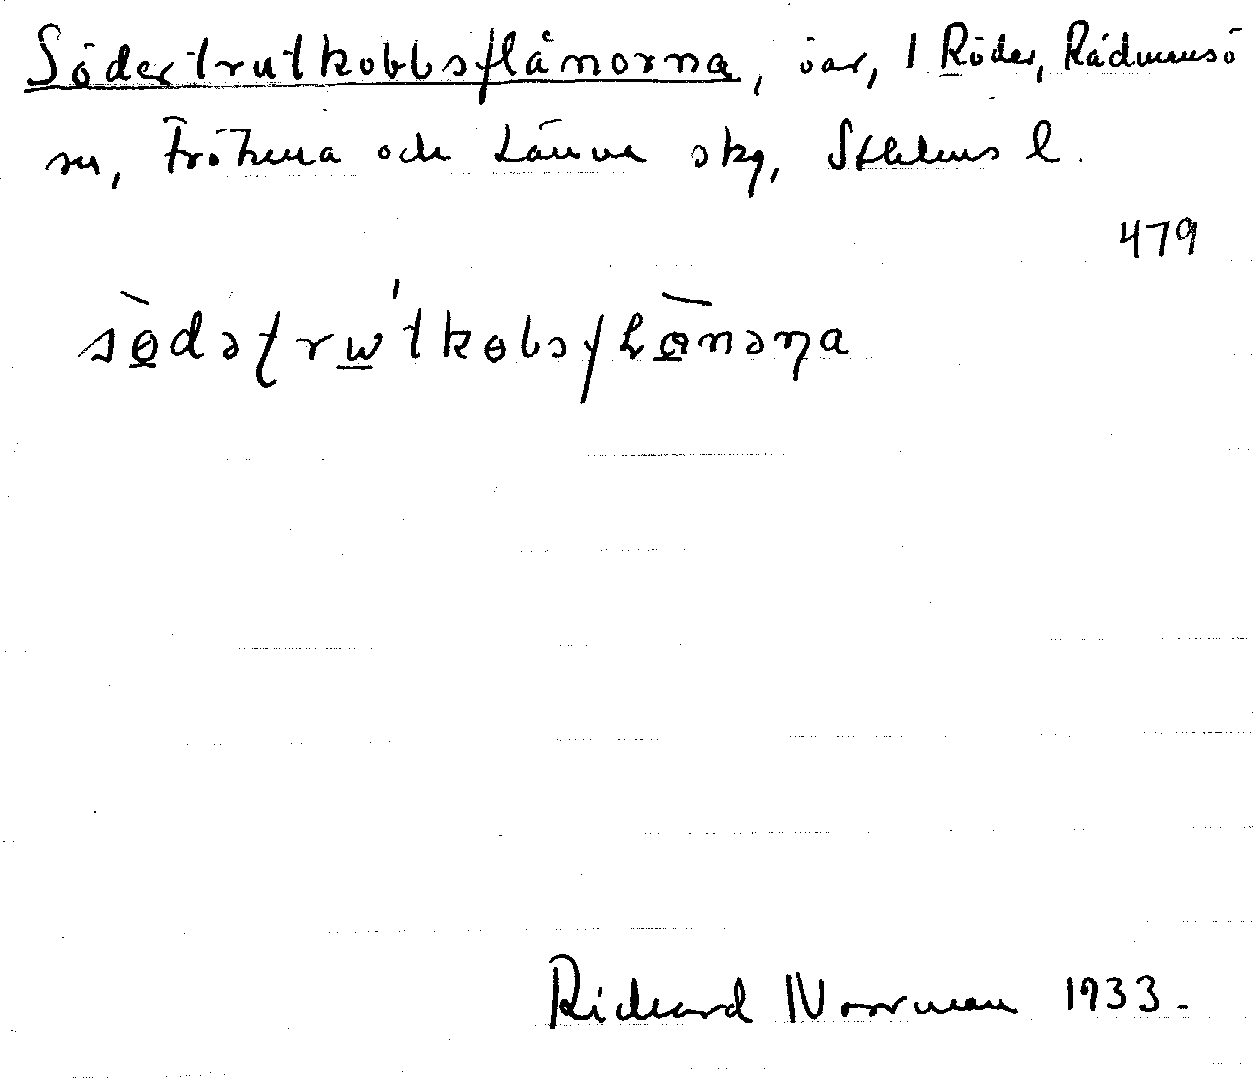 Södertrutkobbsflånorna, öar, 1 Röder, Rådmansö
sn, Frötuna och Länna skg, Sthlms l.
479
sö̀dəʈrɯ'tkobsfʟṑnəɳa
Rickard Norrman 1933.